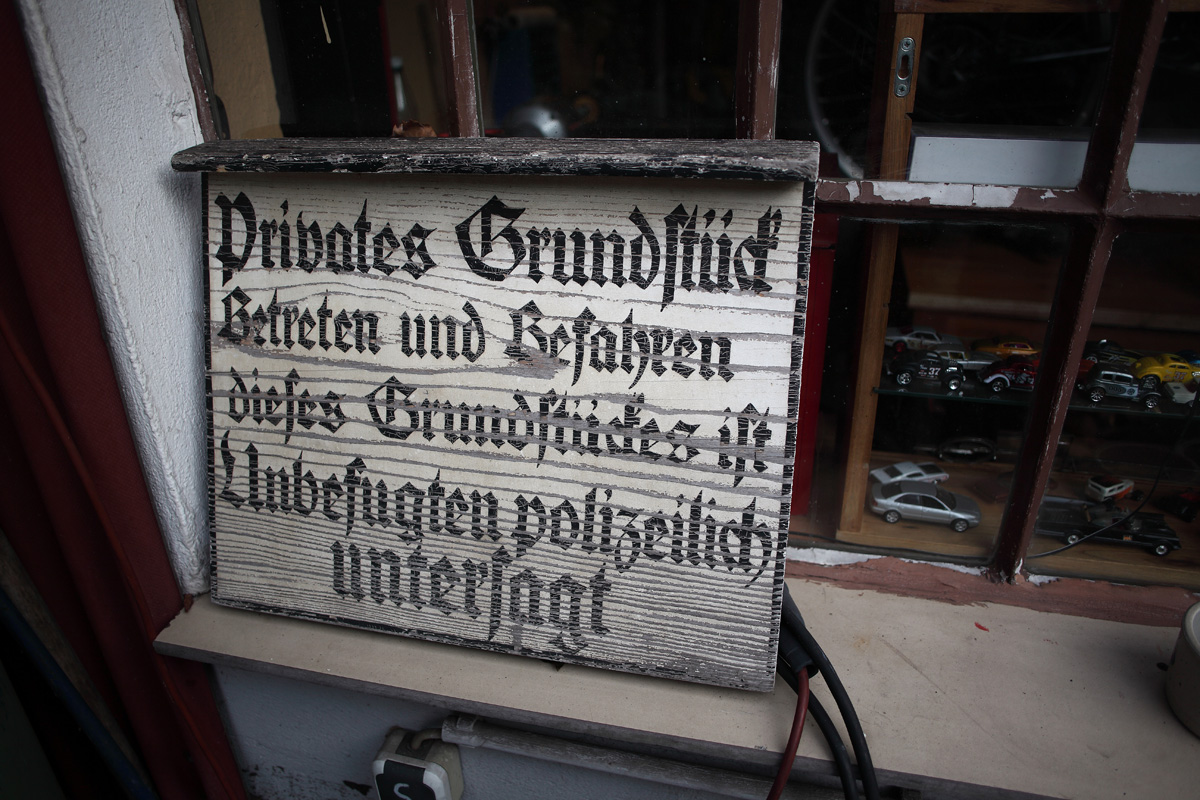 Privates Grundſtück
Betreten und Befahren
dieſes Grundſtückes iſt
Unbefugten polizeilich
unterſagt